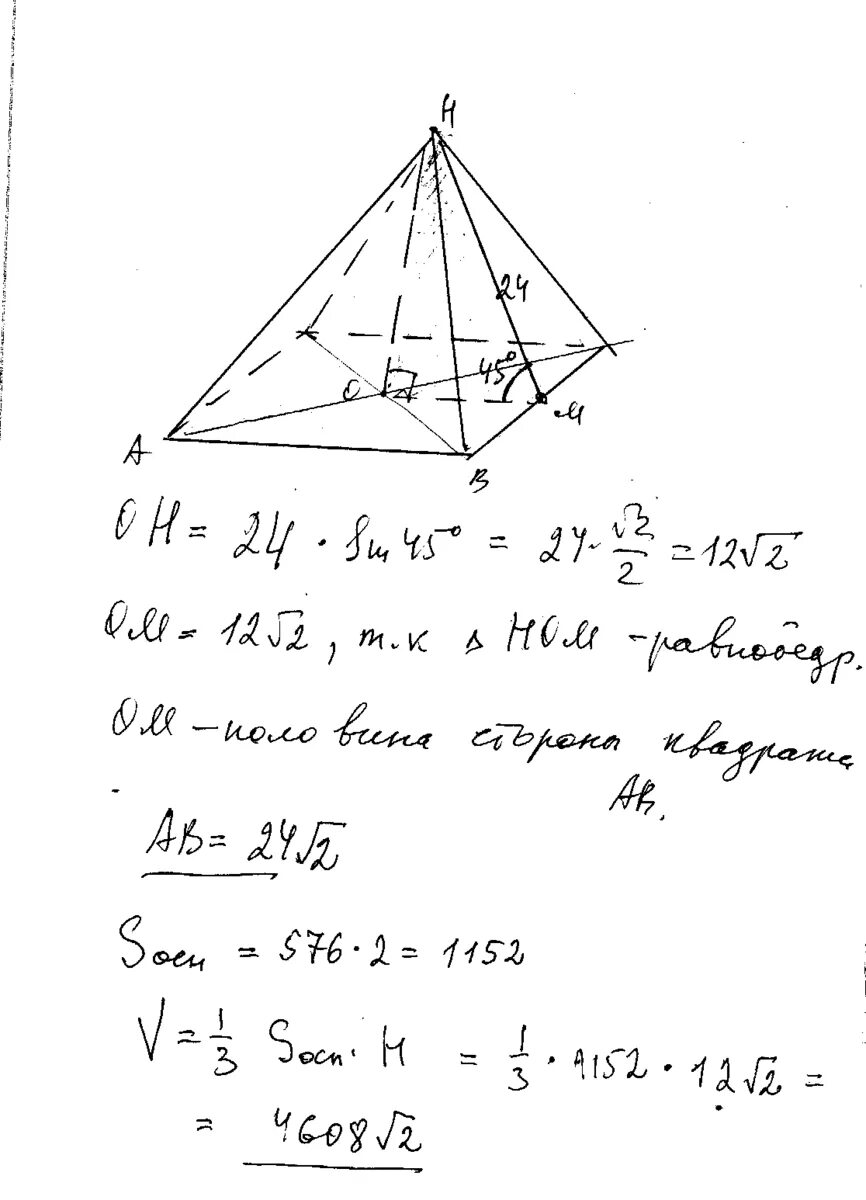 H
24
45°
O
M
A
B
OH = 24 · Sin 45° = 24 · √2/2 = 12√2
OM = 12√2, т.к Δ HOM – равнобедр.
OM – половина стороны квадрата
AB.
AB = 24√2
Sосн = 576 · 2 = 1152
V = 1/3 Sосн · H = 1/3 · 1152 · 12√2 =
= 4608√2